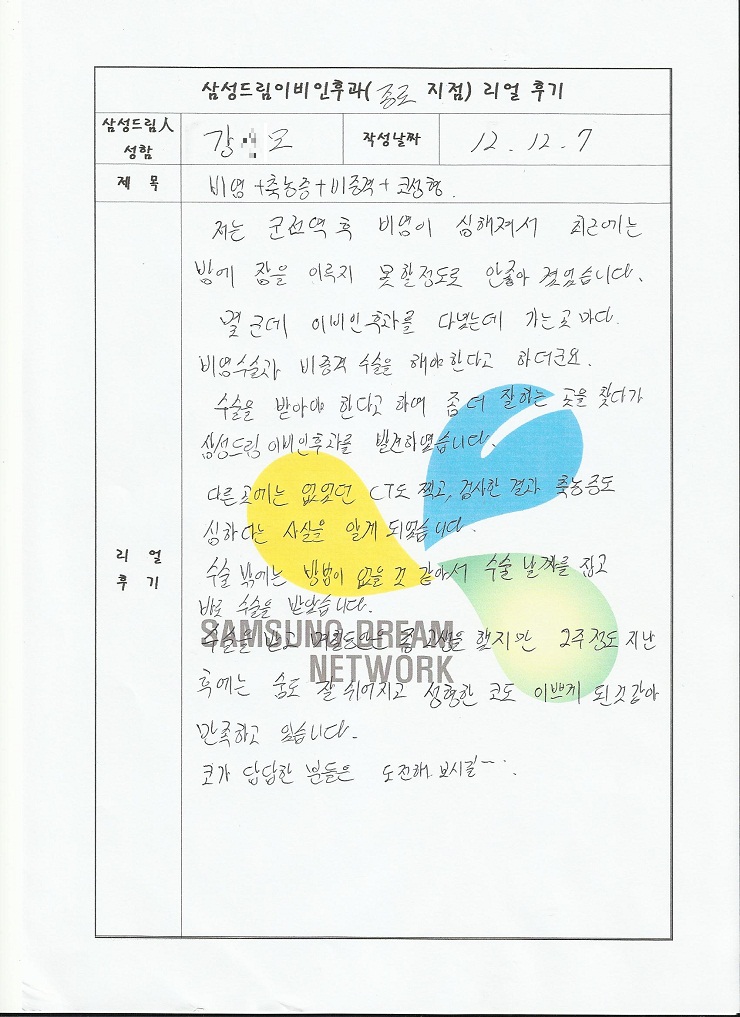 삼성드림이비인후과(종로 지점) 리얼 후기
삼성드림人 성함
강 모
작성날짜
12. 12. 7
제 목
비염+축농증+비중격+코성형.
리 얼 후 기
저는 군전역 후 비염이 심해져서 최근에는
밤에 잠을 이루지 못할정도로 안좋아 졌었습니다.
몇 군데 이비인후과를 다녔는데 가는곳 마다.
비염수술과 비중격 수술을 해야한다고 하더군요.
수술을 받아야 한다고 하여 좀 더 잘하는 곳을 찾다가
삼성드림 이비인후과를 발견하였습니다.
다른곳에는 없었던 CT도 찍고, 검사한 결과 축농증도
심하다는 사실을 알게 되었습니다.
수술 밖에는 방법이 없을 것 같아서 수술 날짜를 잡고
바로 수술을 받았습니다.
수술을 받고 며칠동안은 좀 고생을 했지만 2주정도 지난
후에는 숨도 잘 쉬어지고 성형한 코도 이쁘게 된것같아
만족하고 있습니다.
코가 답답한 분들은 도전해 보시길~.
SAMSUNG DREAM
NETWORK